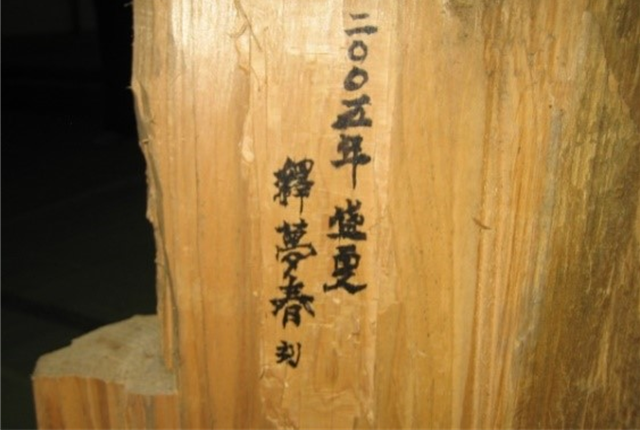 二〇〇五年 盛夏
釋夢春 刻